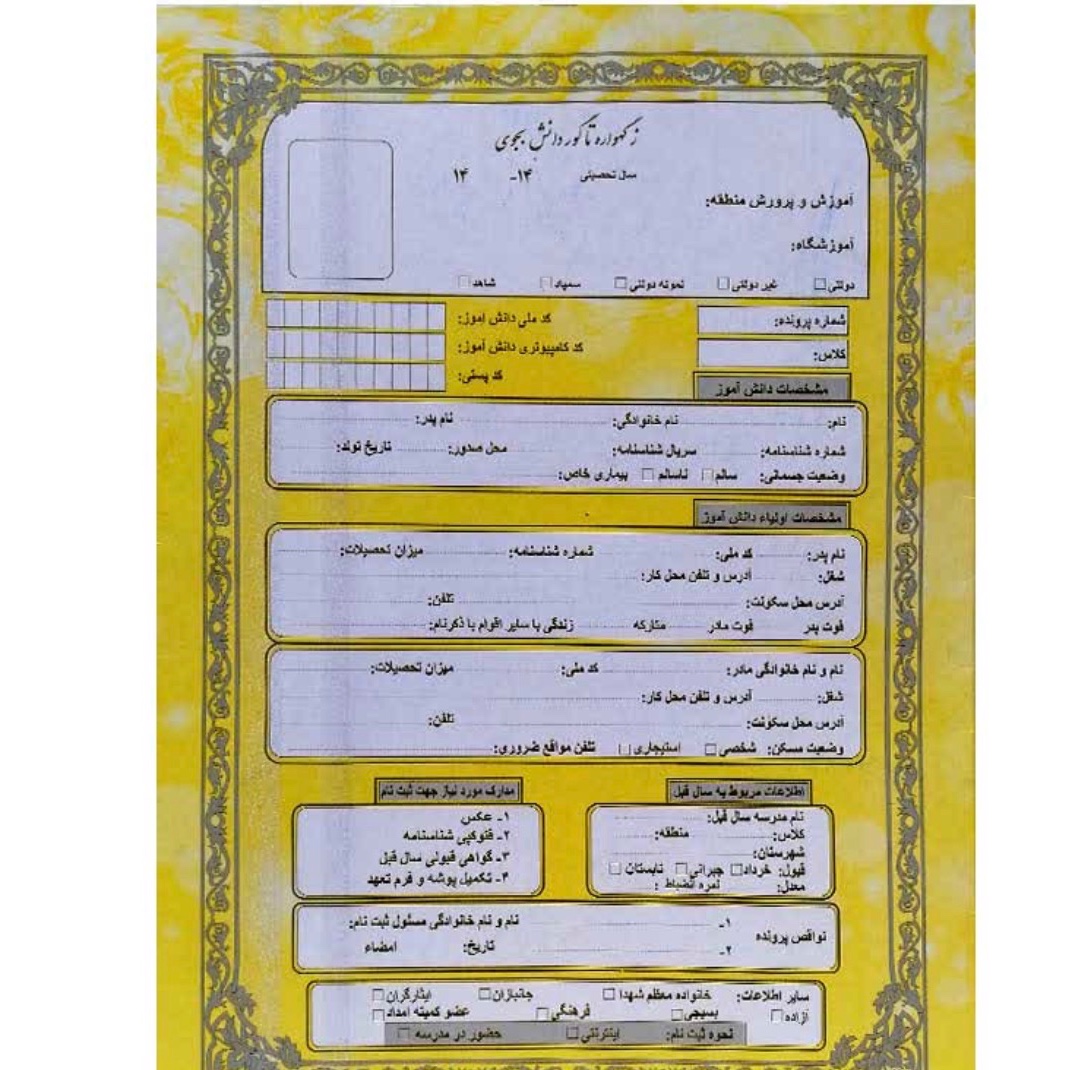 ز گهواره تا گور دانش بجوی
سال تحصیلی ۱۴- ۱۴
آموزش و پرورش منطقه:
آموزشگاه:
دولتی غیر دولتی نمونه دولتی سمپاد شاهد
شماره پرونده: کد ملی دانش آموز:
کلاس: کد کامپیوتری دانش آموز:
کد پستی:
مشخصات دانش آموز
نام: نام خانوادگی: نام پدر:
شماره شناسنامه: سریال شناسنامه: محل صدور: تاریخ تولد:
وضعیت جسمانی: سالم ناسالم بیماری خاص:
مشخصات اولیاء دانش آموز
نام پدر: کد ملی: شماره شناسنامه: میزان تحصیلات:
شغل: آدرس و تلفن محل کار:
آدرس محل سکونت: تلفن:
فوت پدر فوت مادر متارکه زندگی با سایر اقوام با ذکرنام:
نام و نام خانوادگی مادر: کد ملی: میزان تحصیلات:
شغل: آدرس و تلفن محل کار:
آدرس محل سکونت: تلفن:
وضعیت مسکن: شخصی استیجاری تلفن مواقع ضروری:
اطلاعات مربوط به سال قبل
نام مدرسه سال قبل:
کلاس: منطقه:
شهرستان:
قبول: خرداد جبرانی تابستان
معدل: نمره انضباط :
مدارک مورد نیاز جهت ثبت نام
۱- عکس
۲- فتوکپی شناسنامه
۳- گواهی قبولی سال قبل
۴- تکمیل پوشه و فرم تعهد
نواقص پرونده
۱-
۲-
نام و نام خانوادگی مسئول ثبت نام:
تاریخ: امضاء
سایر اطلاعات: خانواده معظم شهدا جانبازان ایثارگران
آزاده بسیجی فرهنگی عضو کمیته امداد
نحوه ثبت نام: اینترنتی حضور در مدرسه